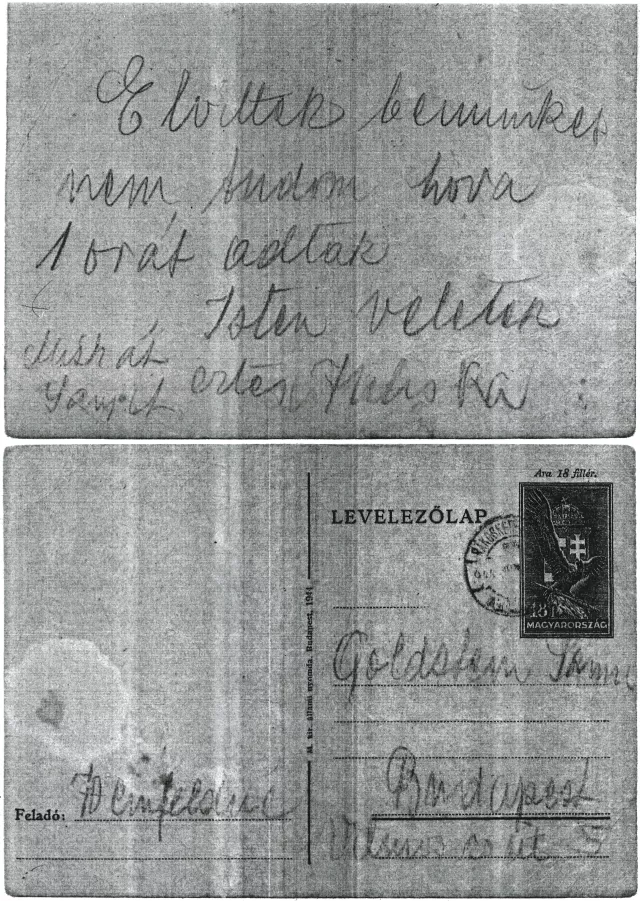 Elvittek bennünket
nem tudom hova
1 orát adtak
Isten veletek
Miskát
értes
Ára 18 fillér.
LEVELEZŐLAP
18
MAGYARORSZÁG
M. kir. állami nyomda, Budapest, 1944
Goldstein
Budapest
Vilmos cs út 5
Feladó: Weinfeldné